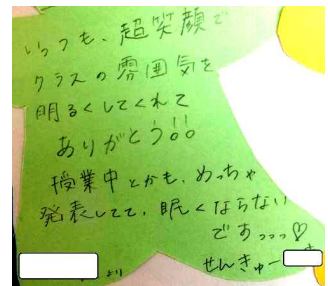 いっつも、超笑顔で
クラスの雰囲気を
明るくしてくれて
ありがとう!!
授業中とかも、めっちゃ
発表してて、眠くならない
でぁっっっ♡
せんきゅー
より